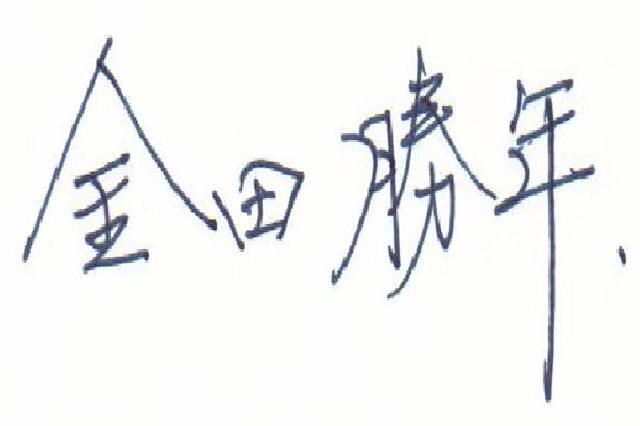 金田勝年.